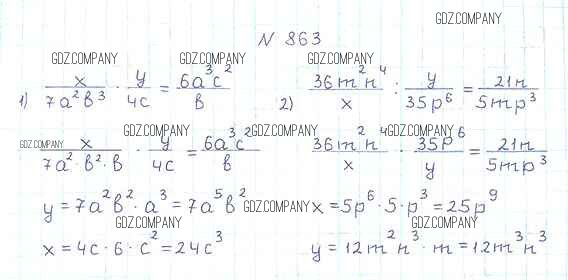 GDZ.COMPANY
N 863
GDZ.COMPANY GDZ.COMPANY GDZ.COMPANY
1) x/7a²b³ · y/4c = 6a³c²/b 2) 36m²n⁴/x : y/35p⁶ = 21n/5mp³
GDZ.COMPANY GDZ.COMPANY GDZ.COMPANY GDZ.COMPANY
x/7a²·b²·b · y/4c = 6a³c²/b 36m²n⁴/x · 35p⁶/y = 21n/5mp³
y = 7a²b²·a³ = 7a⁵b² GDZ.COMPANY x = 5p⁶·5·p³ = 25p⁹
GDZ.COMPANY GDZ.COMPANY
x = 4c·6·c² = 24c³ y = 12m²n³·m = 12m³n³